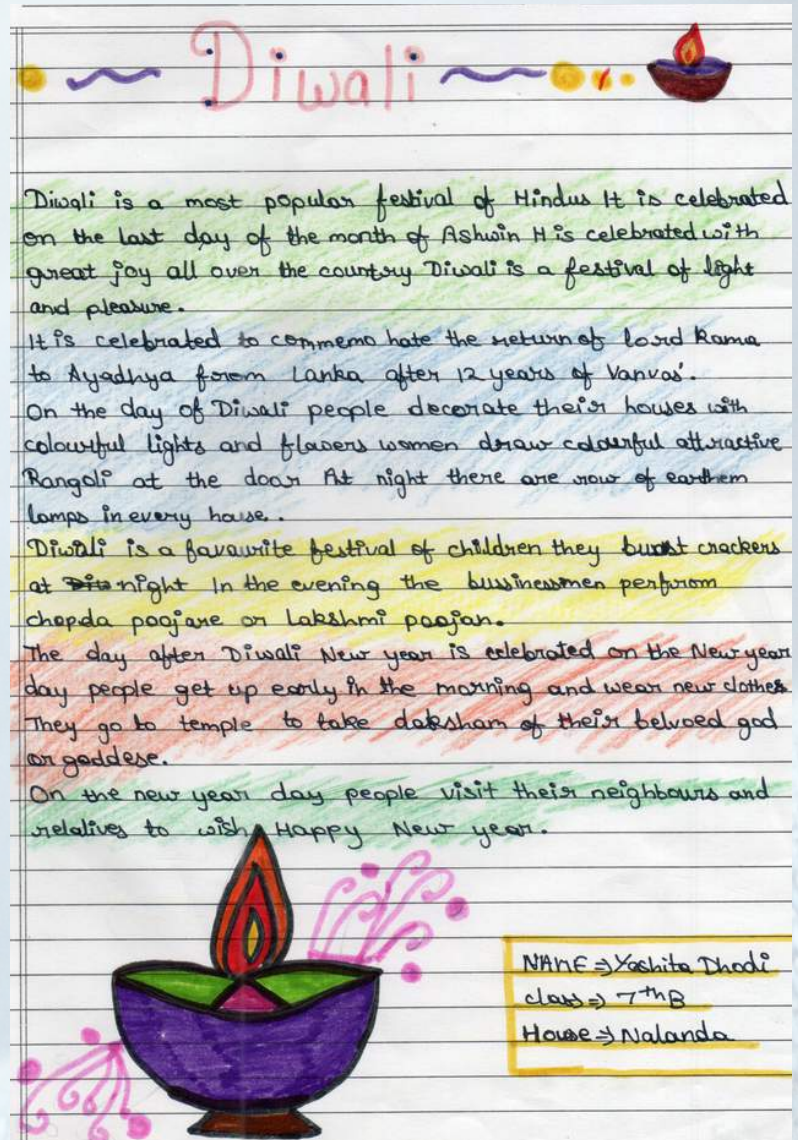 Diwali
Diwali is a most popular festival of Hindus It is celebrated
on the last day of the month of Ashwin It is celebrated with
great joy all over the country Diwali is a festival of light
and pleasure.
It is celebrated to commemo hate the return of lord Rama
to Ayadhya from Lanka after 12 years of Vanvas'.
On the day of Diwali people decorate their houses with
colourful lights and flawers women draw colourful attractive
Rangoli at the door At night there are row of earthem
lamps in every house.
Diwali is a favaurite festival of children they burst crackers
at night In the evening the bussinessmen perfrom
chopda poojane or Lakshmi poojan.
The day after Diwali New year is celebrated on the New year
day people get up early in the morning and wear new clothes
They go to temple to take daksham of their belvoed god
or goddese.
On the new year day people visit their neighbours and
relatives to wish Happy New year.
NAME ⇒ Yashita Dhodi
class ⇒ 7th B
House ⇒ Nalanda